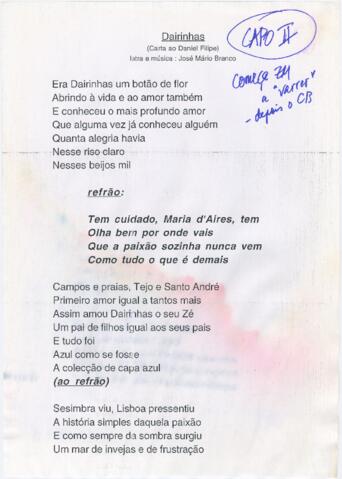 Dairinhas
(Carta ao Daniel Filipe)
letra e música : José Mário Branco
CAPO II
começa ZM
a "varrer"
- depois o CB
Era Dairinhas um botão de flor
Abrindo à vida e ao amor também
E conheceu o mais profundo amor
Que alguma vez já conheceu alguém
Quanta alegria havia
Nesse riso claro
Nesses beijos mil
refrão:
Tem cuidado, Maria d'Aires, tem
Olha bem por onde vais
Que a paixão sozinha nunca vem
Como tudo o que é demais
Campos e praias, Tejo e Santo André
Primeiro amor igual a tantos mais
Assim amou Dairinhas o seu Zé
Um pai de filhos igual aos seus pais
E tudo foi
Azul como se fosse
A colecção de capa azul
(ao refrão)
Sesimbra viu, Lisboa pressentiu
A história simples daquela paixão
E como sempre da sombra surgiu
Um mar de invejas e de frustração